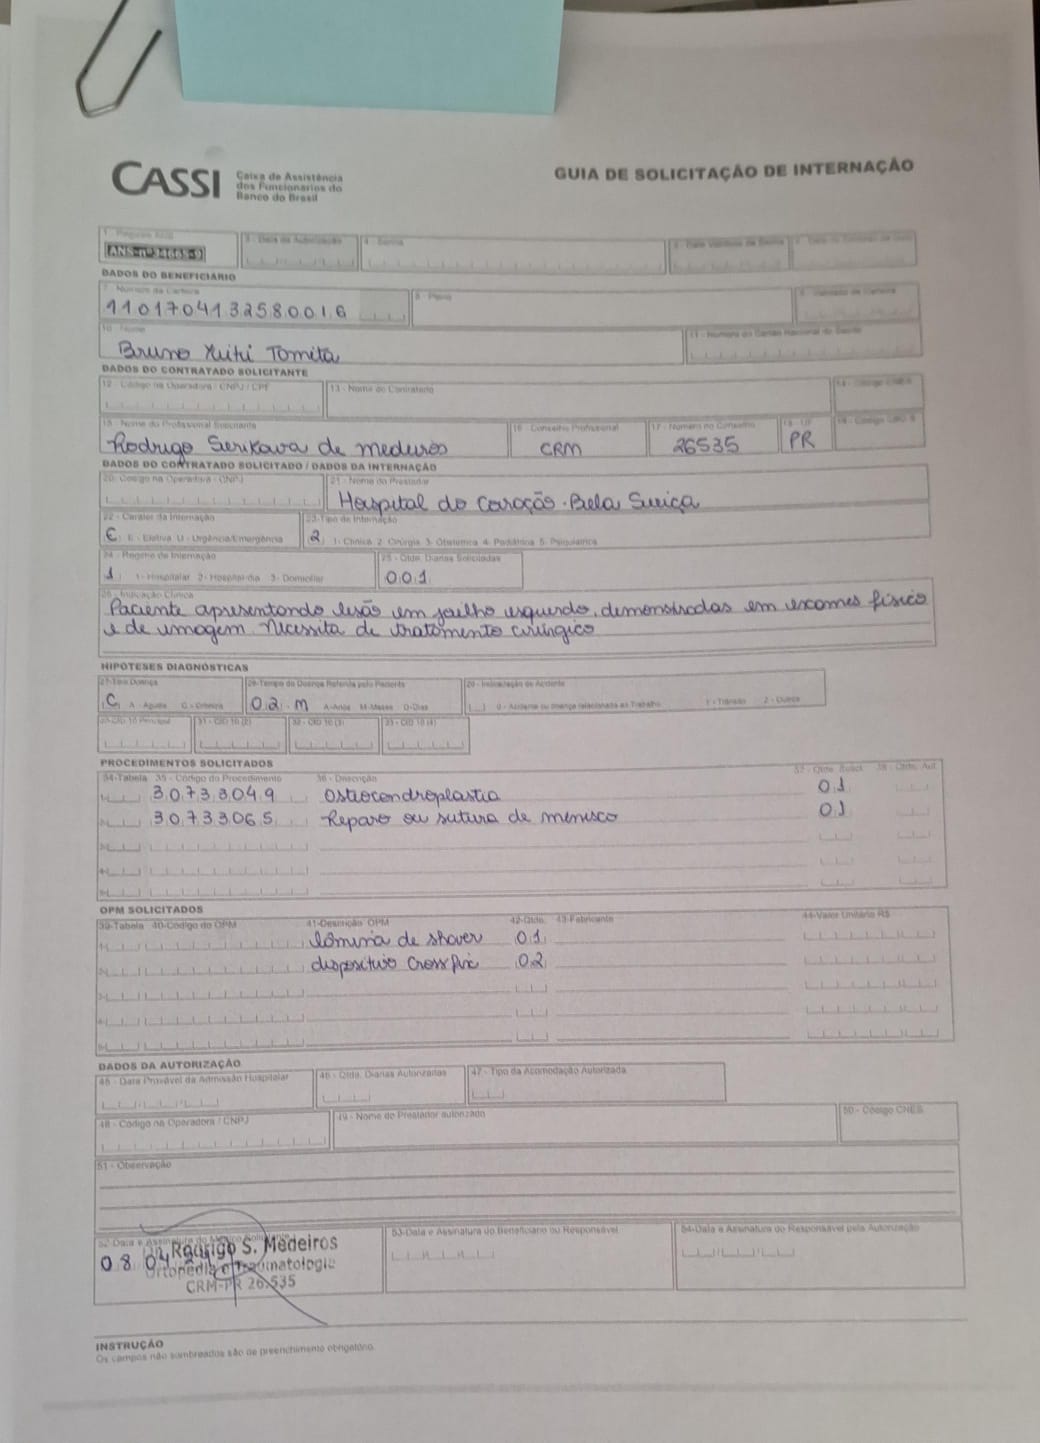 CASSI
Caixa de Assistência
dos Funcionários do
Banco do Brasil
GUIA DE SOLICITAÇÃO DE INTERNAÇÃO
1 - Registro ANS
ANS-nº 34665-9
3 - Data da Autorização
4 - Senha
DADOS DO BENEFICIÁRIO
7 - Número da Carteira
1101704132580016
8 - Plano
9 - Validade da Carteira
10 - Nome
Bruno Yuiti Tomita
11 - Número do Cartão Nacional de Saúde
DADOS DO CONTRATADO SOLICITANTE
12 - Código na Operadora / CNPJ / CPF
13 - Nome do Contratado
14 - Código CNES
15 - Nome do Profissional Solicitante
Rodrigo Serikava de medeiros
16 - Conselho Profissional
CRM
17 - Número no Conselho
26535
18 - UF
PR
19 - Código CBO S
DADOS DO CONTRATADO SOLICITADO / DADOS DA INTERNAÇÃO
20 - Código na Operadora - CNPJ
21 - Nome do Prestador
Hospital do Coração - Bela Suiça
22 - Caráter da Internação
E E - Eletiva U - Urgência/Emergência
23-Tipo de Internação
2 1- Clínica 2- Cirúrgia 3- Obstétrica 4- Pediátrica 5- Psiquiátrica
24 - Regime de Internação
1 1- Hospitalar 2- Hospital-dia 3- Domiciliar
25 - Qtde. Diárias Solicitadas
001
26 - Indicação Clínica
Paciente apresentando lesão em joelho esquerdo, demonstradas em exames físico
e de imagem. Necessita de tratamento cirúrgico
HIPÓTESES DIAGNÓSTICAS
27-Tipo Doença
C A - Aguda C - Crônica
28-Tempo de Doença Referida pelo Paciente
02 - M A-Anos M-Meses D-Dias
29 - Indicação de Acidente
0 - Acidente ou doença relacionada ao Trabalho 1 - Trânsito 2 - Outros
30-CID 10 Principal
31 - CID 10 (2)
32 - CID 10 (3)
33 - CID 10 (4)
PROCEDIMENTOS SOLICITADOS
34-Tabela 35 - Código do Procedimento 36 - Descrição 37 - Qtde. Solict. 38 - Qtde. Aut.
1- 30733049 Osteocondroplastia 01
2- 30733065 Reparo ou sutura de menisco 01
3-
4-
5-
OPM SOLICITADOS
39-Tabela 40-Código do OPM 41-Descrição OPM 42-Qtde. 43-Fabricante 44-Valor Unitário R$
1- lâmina de shaver 01
2- dispositivo Crossfix 02
3-
4-
5-
DADOS DA AUTORIZAÇÃO
45 - Data Provável da Admissão Hospitalar
46 - Qtde. Diárias Autorizadas
47 - Tipo da Acomodação Autorizada
48 - Código na Operadora / CNPJ
49 - Nome do Prestador autorizado
50 - Código CNES
51 - Observação
52-Data e Assinatura do Médico Solicitante
08 04
Dr. Rodrigo S. Medeiros
Ortopedia e Traumatologia
CRM-PR 26.535
53-Data e Assinatura do Beneficiário ou Responsável
54-Data e Assinatura do Responsável pela Autorização
INSTRUÇÃO
Os campos não sombreados são de preenchimento obrigatório.